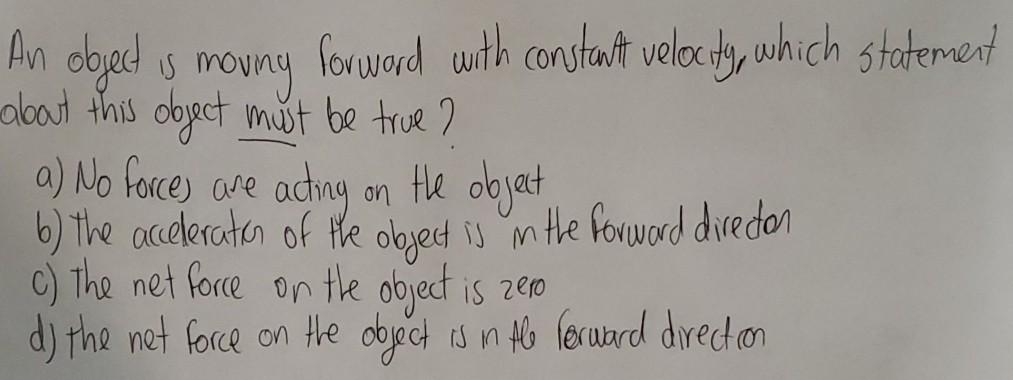 An object is moving forward with constant velocity, which statement
about this object must be true?
a) No forces are acting on the object
b) The acceleration of the object is in the forward direction
c) The net force on the object is zero
d) the net force on the object is in the forward direction